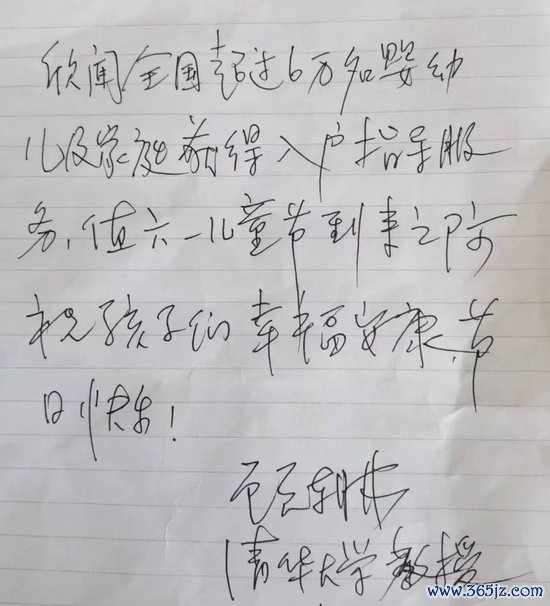 欣闻全国超过6万名婴幼
儿及家庭获得入户指导服
务，值六一儿童节到来之际
祝孩子们幸福安康，节
日快乐！
清华大学教授
www.365jz.com